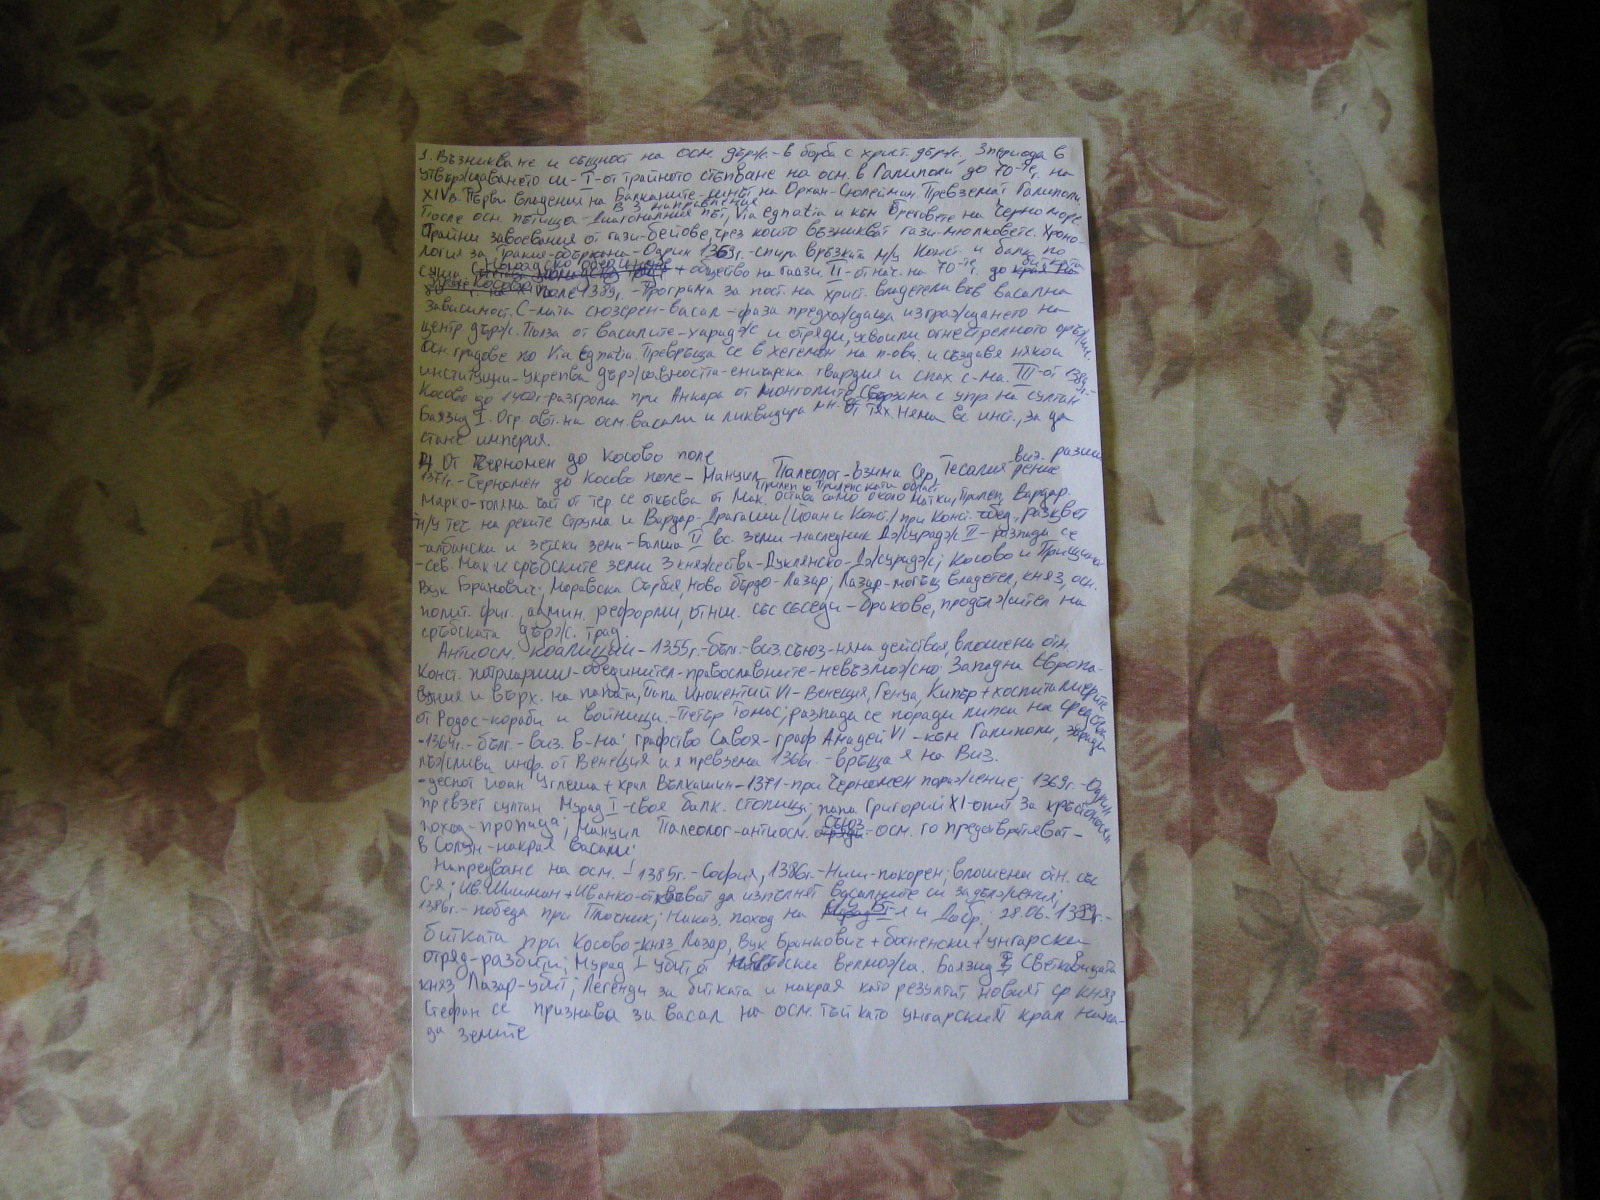 1. Възникване и същност на осм. държ.- в борба с христ. държ., 3 периода в
утвърждаването ѝ - I - от трайното стъпване на осм. в Галиполи до 70-те г. на
XIVв. Първи владения на Балканите - синът на Орхан - Сюлейман. Превземат Галиполи.
в 3 направления
После осм. пътища - диагоналния път, Via Egnatia и към бреговете на Черно море.
Трайни завоевания от гази-бейове, чрез които възникват гази-мюлковете. Хроно-
логия за Тракия - объркана - Одрин 1369г. - спира връзката м/у Конст. и балк. по
суша + общество на гаази. II - от нач. на 70-те г. до битката
поле 1389г. - Програма за пост. на христ. владетели във васална
зависимост. С-мата сюзерен-васал - фаза предхождаща изграждането на
центр държ. Полза от васалите - харадж и отряди, усвоили огнестрелното оръжие.
Осн. градове по Via Egnatia. Превръща се в хегемон на п-ова и създава някои
институции - укрепва държавността - еничарска гвардия и спах. с-ма. III - от 1389г.-
Косово до 1402г. - разгрома при Анкара от монголите. Свързана с упр. на султан
Баязид I. Огр. авт. на осм. васали и ликвидира мн. от тях. Няма вс инст., за да
стане империя.
От Черномен до Косово поле
1371г. - Черномен до Косово поле - Мануил Палеолог - взима Сер, Тесалия виз. разши
рение
Прилеп и Прилепската област
Марко - голяма част от тер се откъсва от Мак, остава само около Прилеп, Вардар.
м/у теч на реките Струма и Вардар - Драгаши /Йоан и Конст./ при Конст. - разцвет
- албански и зетски земи - Балша II вс. земи - наследник Джурадж II - разпада се
- сев. Мак и сръбските земи 3 княжества - Дуклянско - Джурадж; Косово и Прищина
Вук Бранович; Моравска Сърбия, Ново бърдо - Лазар; Лазар - могъщ владетел, княз, осн.
полит. фиг., админ. реформи, отнш. със съседи - бракове, продължител на
сръбската държ. трад.
Антиосм. коалиции - 1355г. - бълг.-виз. съюз - няма действия, влошени отн.
Конст. патриаршия - обединител - православните - невъзможно. Западна Европа -
уния и върх. на папата, папа Инокентий VI - Венеция, Генуа, Кипър + хоспиталиерите
от Родос - кораби и войници. - Петър Томас; разпада се поради липса на средства
- 1364г. - бълг.-виз. в-на; графство Савоя - граф Амадей VI - към Галиполи, заради
лъжлива инф. от Венеция и я превзема 1366г. - връща я на Виз.
- деспот Йоан Углеша + крал Вълкашин - 1371 - при Черномен поражение; 1369г. - Одрин
превзет султан Мурад I - своя балк. столица; папа Григорий XI - опит за кръстоносен
поход - пропада; Мануил Палеолог - антиосм. съюз - осм. го предотвратяват -
в Солун - накрая васали
Напредване на осм. - 1385г. - София, 1386г. - Ниш - покорен; влошени отн. със
С-я; Ив. Шишман + Иванко - отказват да изпълнят васалните си задължения;
1386г. - победа при Плочник; Наказ. поход на и Добр; 28.06.1389г. -
битката при Косово - княз Лазар, Вук Бранкович + босненски + унгарски
отряд - разбити; Мурад I убит от велможа. Баязид I Светкавицата
княз Лазар - убит; Легенди за битката и накрая като резултат новият ср княз
Стефан се признава за васал на осм. тъй като унгарският крал напа-
да земите